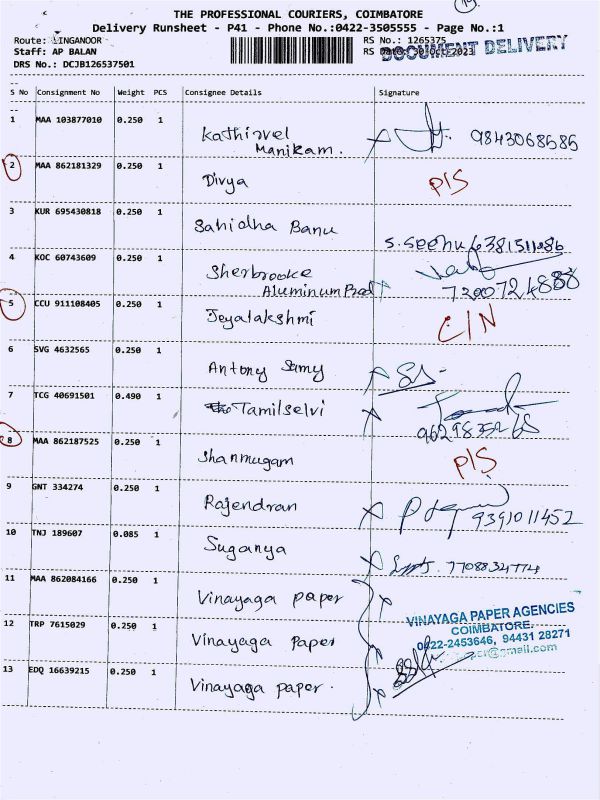 THE PROFESSIONAL COURIERS, COIMBATORE
Delivery Runsheet - P41 - Phone No.:0422-3505555 - Page No.:1
Route: LINGANOOR
RS No.: 1265375
Staff: AP BALAN
RS Date: 30-Oct-2023
DOCUMENT DELIVERY
DRS No.: DCJB126537501
S No Consignment No Weight PCS Consignee Details Signature
1 MAA 103877010 0.250 1 Kathirvel Manikam. 9843068585
2 MAA 862181329 0.250 1 Divya P/S
3 KUR 695430818 0.250 1 Sahidha Banu
4 KOC 60743609 0.250 1 Sherbrooke Aluminum Prod
5 CCU 911108405 0.250 1 Jeyalakshmi C/N
6 SVG 4632565 0.250 1 Antony Samy
7 TCG 40691501 0.490 1 Tamilselvi
8 MAA 862187525 0.250 1 Shanmugam P/S
9 GNT 334274 0.250 1 Rajendran 9391011452
10 TNJ 189607 0.085 1 Suganya 7708834774
11 MAA 862084166 0.250 1 Vinayaga paper
12 TRP 7615029 0.250 1 Vinayaga Paper
13 EDQ 16639215 0.250 1 Vinayaga paper.
VINAYAGA PAPER AGENCIES
COIMBATORE.
0422-2453646, 94431 28271
@gmail.com